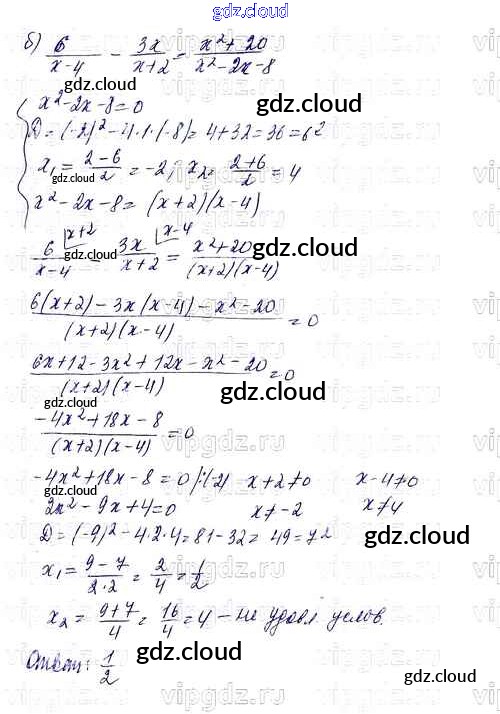 gdz.cloud
б) 6/(x-4) - 3x/(x+2) = (x²+20)/(x²-2x-8)
gdz.cloud gdz.cloud
x²-2x-8=0
D=(-2)²-4·1·(-8)=4+32=36=6²
gdz.cloud
x₁=(2-6)/2=-2; x₂=(2+6)/2=4
gdz.cloud
x²-2x-8=(x+2)(x-4)
6/(x-4) |x+2 - 3x/(x+2) |x-4 = (x²+20)/((x+2)(x-4))
gdz.cloud gdz.cloud
(6(x+2)-3x(x-4)-x²-20)/((x+2)(x-4))=0
gdz.cloud
(6x+12-3x²+12x-x²-20)/((x+2)(x-4))=0
gdz.cloud gdz.cloud
(-4x²+18x-8)/((x+2)(x-4))=0
-4x²+18x-8=0 |:(-2) x+2≠0 x-4≠0
gdz.cloud
2x²-9x+4=0 x≠-2 x≠4
D=(-9)²-4·2·4=81-32=49=7²
gdz.cloud
x₁=(9-7)/(2·2)=2/4=1/2
gdz.cloud
x₂=(9+7)/4=16/4=4 - не удовл. услов.
Ответ: 1/2
gdz.cloud
gdz.cloud
vipgdz.ru